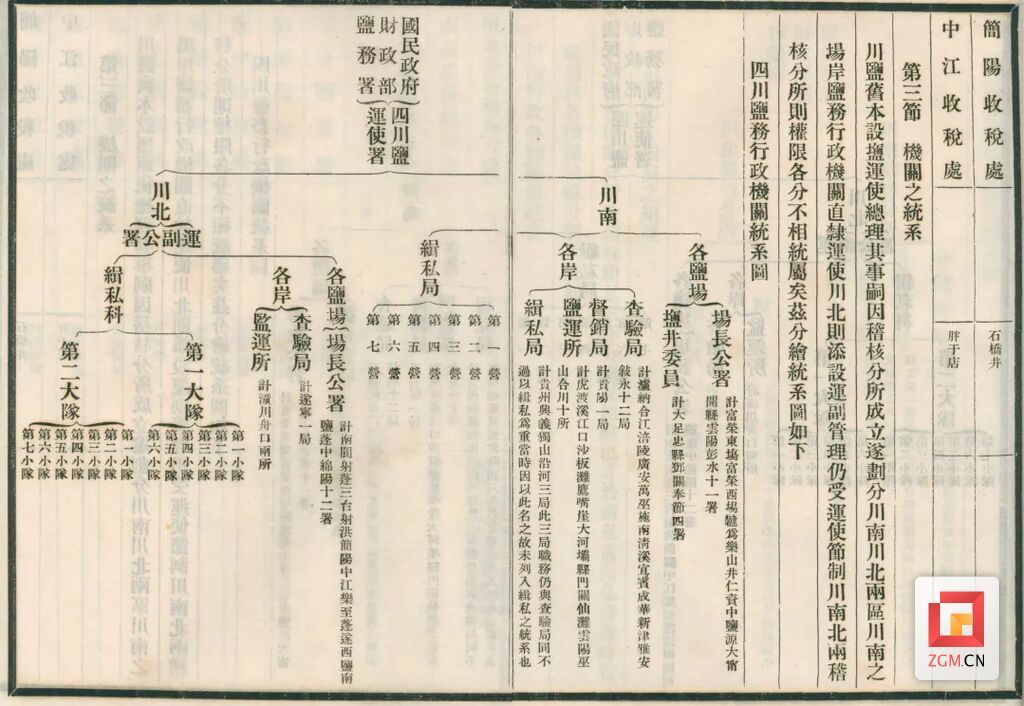 簡陽收稅處
石橋井
中江收稅處
胖子店
第三節 機關之統系
川鹽舊本設塩運使總理其事嗣因稽核分所成立遂劃分川南川北兩區川南之
場岸鹽務行政機關直隸運使川北則添設運副管理仍受運使節制川南北兩稽
核分所則權限各分不相統屬矣茲分繪統系圖如下
四川鹽務行政機關統系圖
國民政府
財政部
鹽務署
四川鹽
運使署
川南
各鹽場
場長公署
計富榮東塲富榮西塲犍爲樂山井仁資中鹽源大甯
開縣雲陽彭水十一署
鹽井委員
計大足忠縣鄧關奉節四署
各岸
查驗局
計瀘納合江涪陵廣安萬巫施南淸溪宜賓成華新津雅安
敍永十二局
督銷局
計貴陽一局
鹽運所
計虎渡溪江口沙板灘鷹嘴崖大河壩縣門關仙灘雲陽巫
山合川十所
緝私局
計貴州興義獨山沿河三局此三局職務仍與查驗局同不
過以緝私爲重當時因以此名之故未列入緝私之統系也
緝私局
第一營
第二營
第三營
第四營
第五營
第六營
第七營
川北
運副公署
各鹽場
場長公署
計南閬射蓬三台射洪簡陽中江樂至蓬遂西鹽南
鹽蓬中綿陽十二署
各岸
查驗局
計遂寧一局
監運所
計潼川舟口兩所
緝私科
第一大隊
第一小隊
第二小隊
第三小隊
第四小隊
第五小隊
第六小隊
第二大隊
第一小隊
第二小隊
第三小隊
第四小隊
第五小隊
第六小隊
第七小隊
ZGM.CN